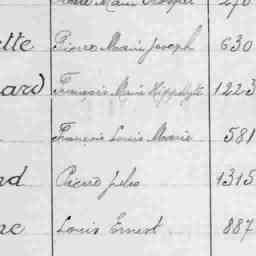 ette Pierre Marie Joseph 630
ard François Marie Hippolyte 1223
François Louis Marie 581
rd Pierre Jules 1315
ne Louis Ernest 887